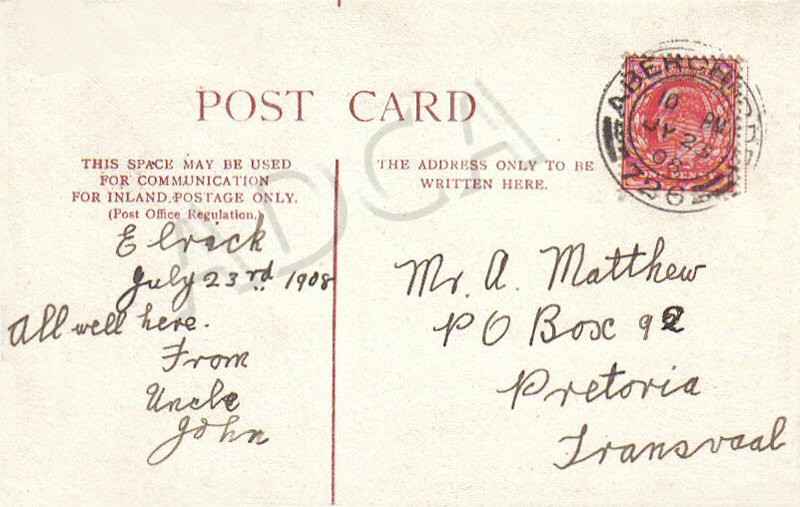 POST CARD
THIS SPACE MAY BE USED
FOR COMMUNICATION
FOR INLAND POSTAGE ONLY.
(Post Office Regulation.)
Elrick
July 23rd 1908
All well here.
From
Uncle
John
THE ADDRESS ONLY TO BE
WRITTEN HERE.
Mr. A. Matthew
PO Box 92
Pretoria
Transvaal
JY 23
08
726
ADCA